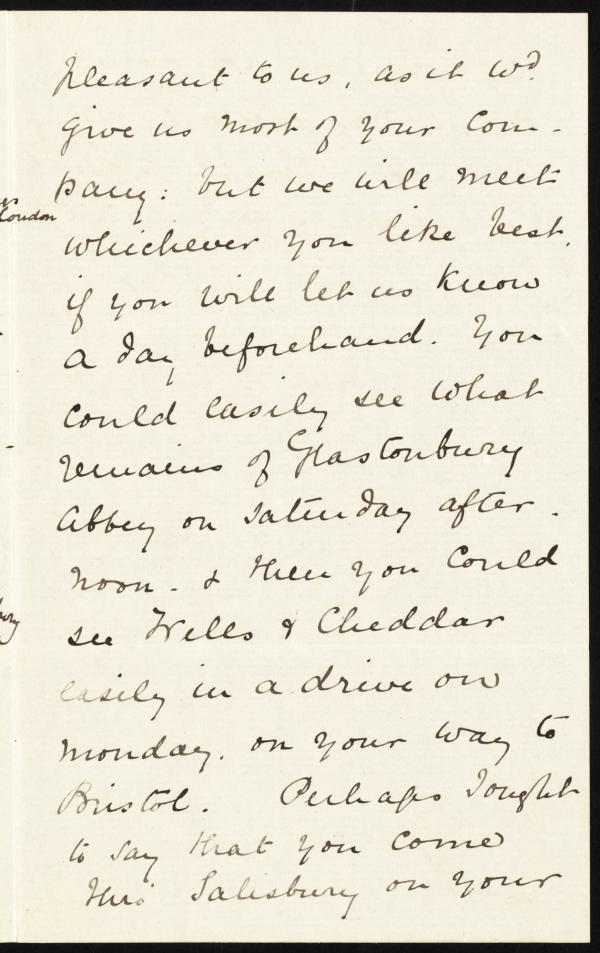 pleasant to us, as it wd.
give us most of your com-
pany: but we will meet
whichever you like best,
if you will let us know
a day beforehand. You
could easily see what
remains of Glastonbury
Abbey on Saturday after-
noon - & then you could
see Wells & Cheddar
easily in a drive on
Monday. on your way to
Bristol. Perhaps I ought
to say that you come
thro' Salisbury on your
London